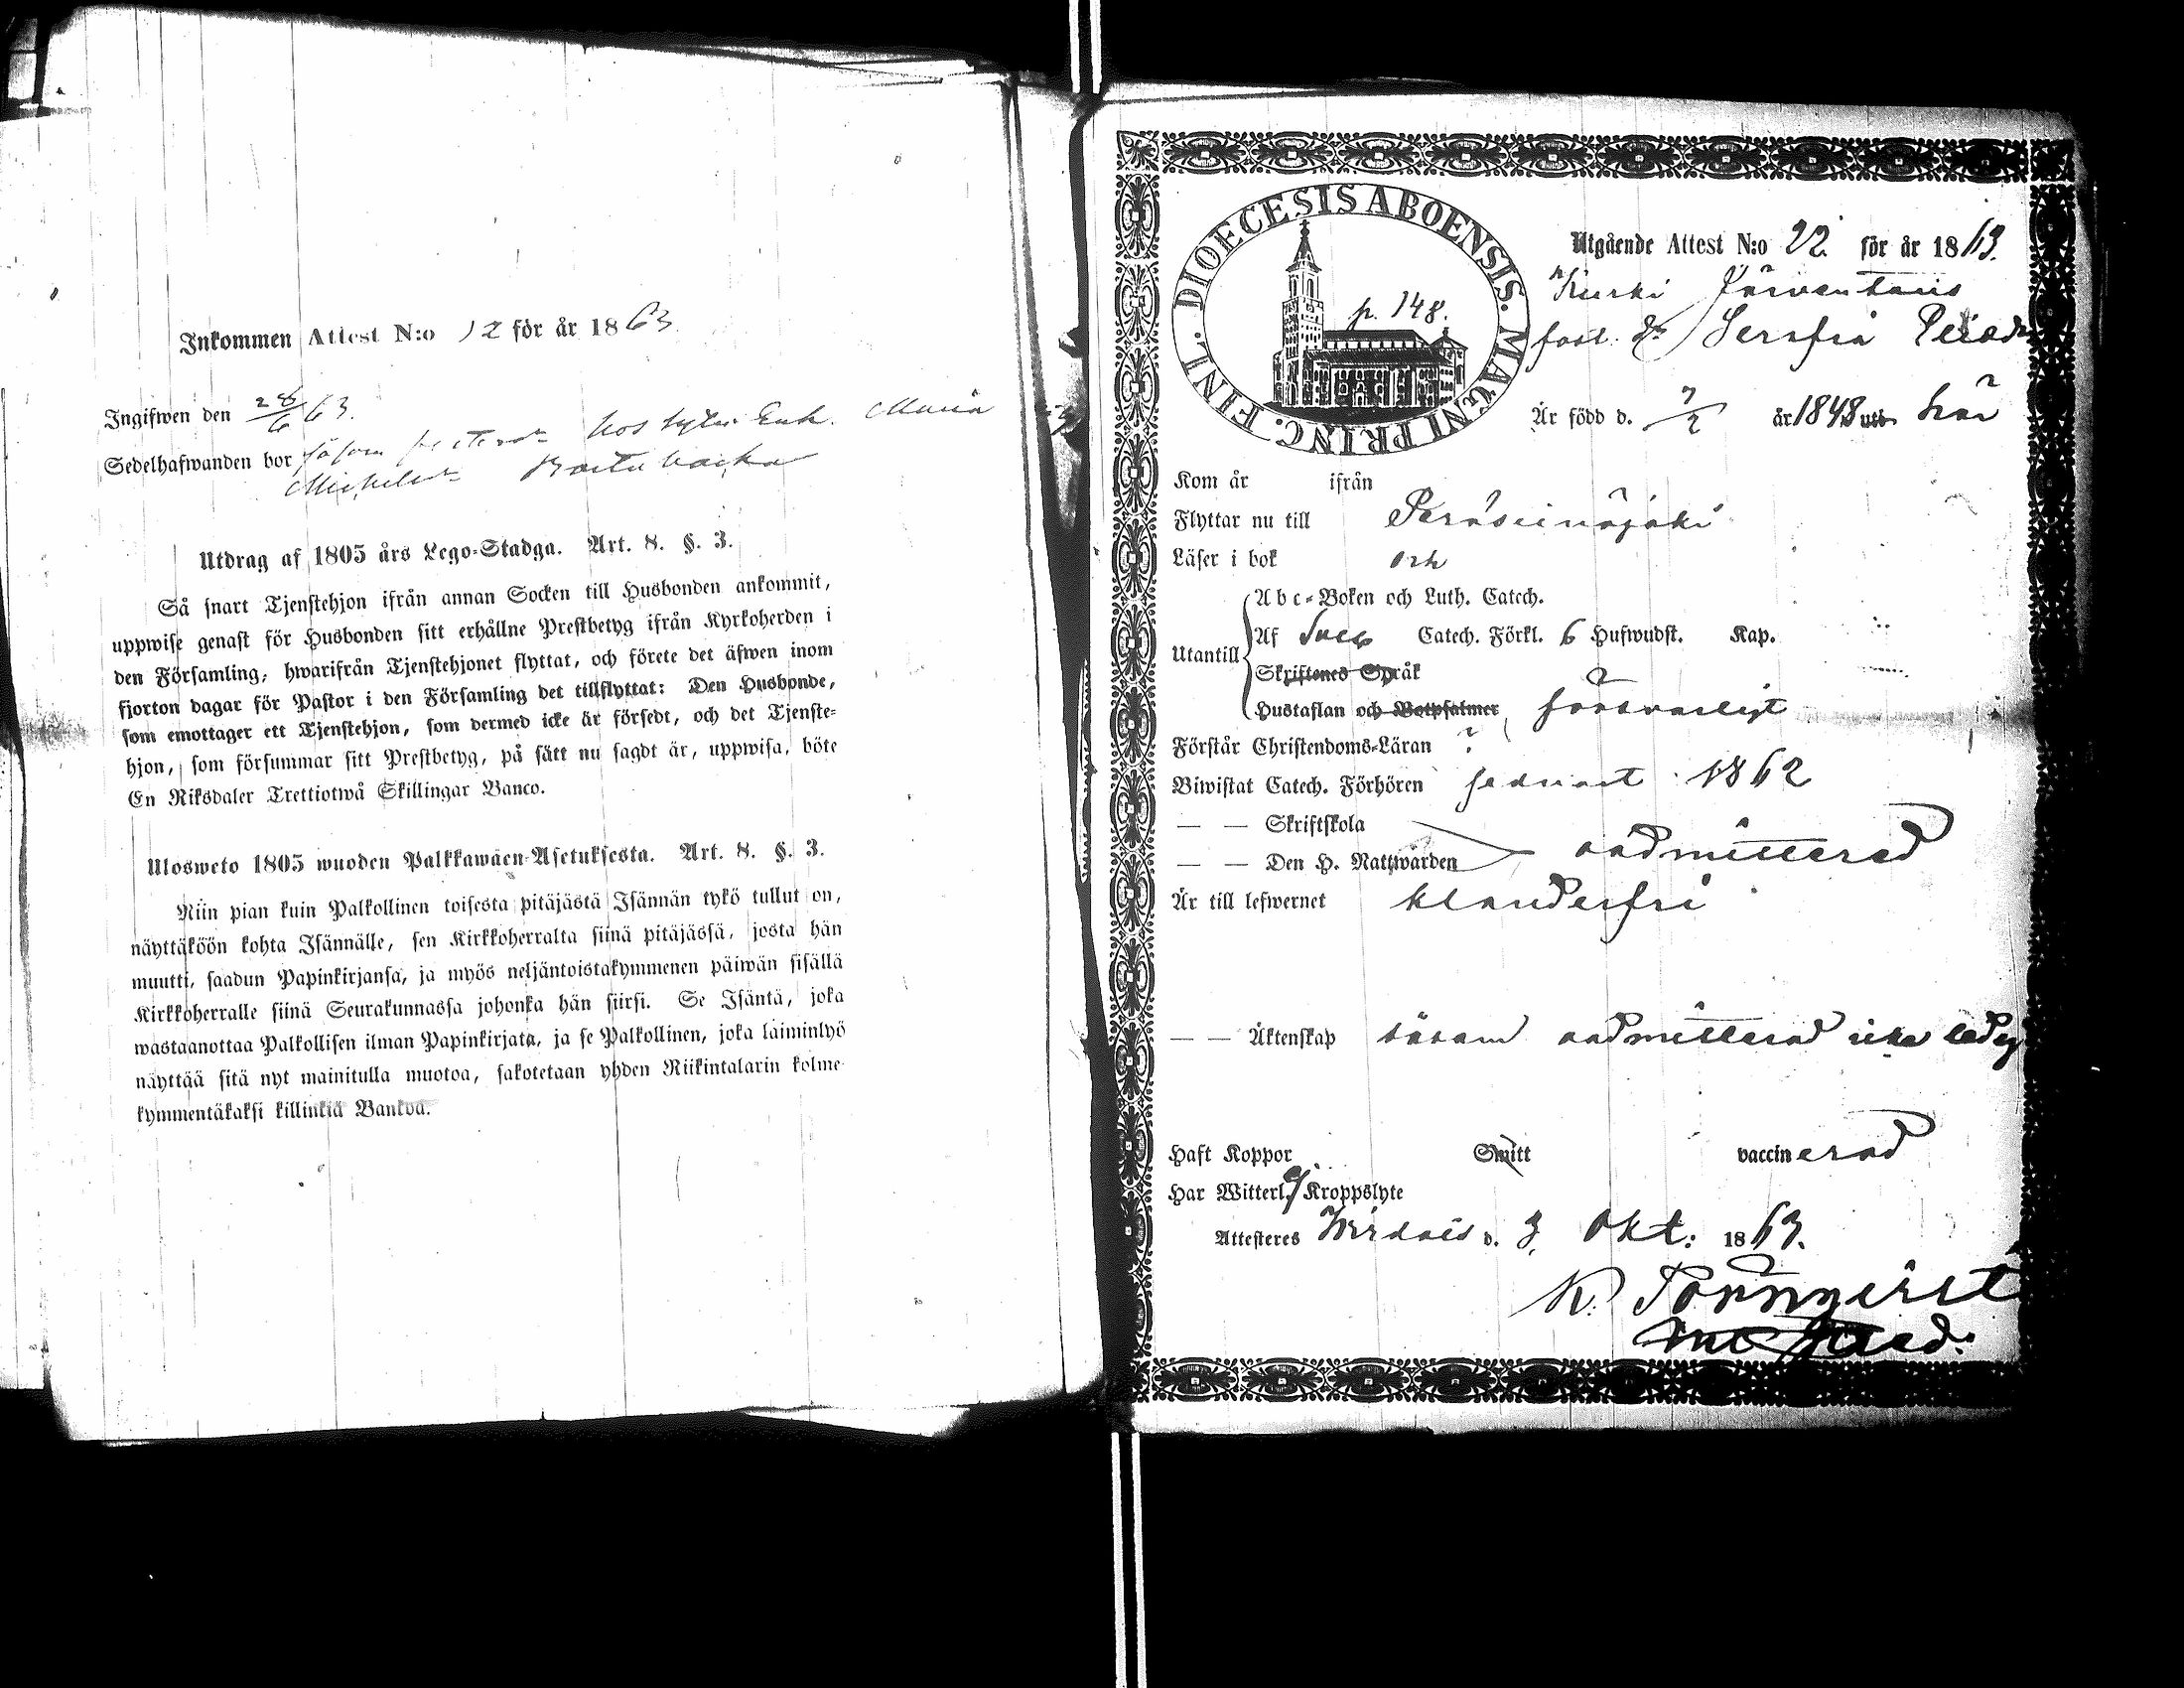 Inkommen Attest N:o 12 för år 1863
Ingifwen den 28/6 63.
Sedelhafwanden bor såsom hos Enk. Maria
Michelsdr
Utdrag af 1805 års Lego-Stadga. Art. 8. §. 3.
Så snart Tjenstehjon ifrån annan Socken till Husbonden ankommit,
uppwise genast för Husbonden sitt erhållne Prestbetyg ifrån Kyrkoherden i
den Församling, hwarifrån Tjenstehjonet flyttat, och förete det äfwen inom
fjorton dagar för Pastor i den Församling det tillflyttat: Den Husbonde,
som emottager ett Tjenstehjon, som dermed icke är försedt, och det Tjenste-
hjon, som försummar sitt Prestbetyg, på sätt nu sagdt är, uppwisa, böte
En Riksdaler Trettiotwå Skillingar Banco.
Ulosweto 1805 wuoden Palkkawäen-Asetuksesta. Art. 8. §. 3.
Niin pian kuin Palkollinen toisesta pitäjästä Isännän tykö tullut on,
näyttäköön kohta Isännälle, sen Kirkkoherralta siinä pitäjässä, josta hän
muutti, saadun Papinkirjansa, ja myös neljäntoistakymmenen päiwän sisällä
Kirkkoherralle siinä Seurakunnassa johonka hän siirsi. Se Isäntä, joka
wastaanottaa Palkollisen ilman Papinkirjata, ja se Palkollinen, joka laiminlyö
näyttää sitä nyt mainitulla muotoa, sakotetaan yhden Riikintalarin kolme-
kymmentäkaksi killinkiä Bankoa.
DIOECESIS ABOENSIS. MAGNI PRINC. FINL.
p. 148.
Utgående Attest N:o 22 för år 1863.
Kurki
dr Serafia
Är född d. 7/2 år 1848 uti här
Kom år ifrån
Flyttar nu till Peräseinäjoki
Läser i bok och
Utantill
Abc-Boken och Luth. Catech.
Af Sveb Catech. Förkl. 6 Hufwudst. Kap.
Skriftenes Språk
Hustaflan och Botpsalmer försvarligt
Förstår Christendoms-Läran
Biwistat Catech. Förhören sednast 1862
— — Skriftskola
— — Den H. Nattwarden oadmitterad
Är till lefwernet klanderfri
— — Äktenskap såsom oadmitterad icke ledig
Haft Koppor Smitt vaccinerad
Har Witterl. ej Kroppslyte
Attesteres Wirdois d. 3 Okt: 1863.
K. Törnqvist